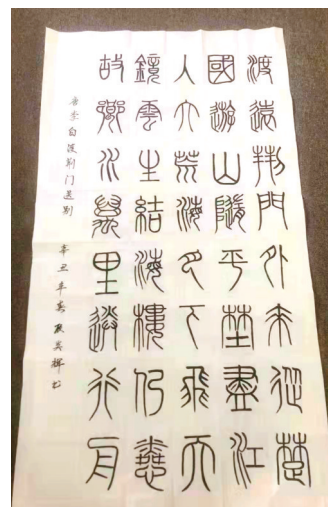 渡遠荊門外來從楚
國遊山隨平埜盡江
入大荒流月下飛天
鏡雲生結海樓仍憐
故鄉水萬里送行舟
唐李白渡荆门送别 辛丑年